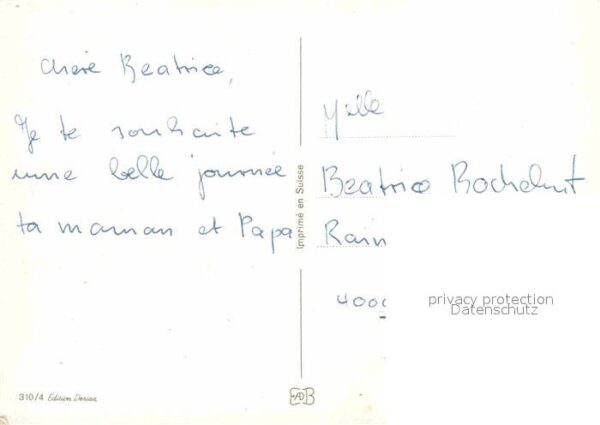 Chère Beatrice,
Je te souhaite
une belle journée
ta maman et Papa
Imprimé en Suisse
Mlle
Beatrice
Rain
4000
privacy protection
Datenschutz
310/4 Edition Dorian